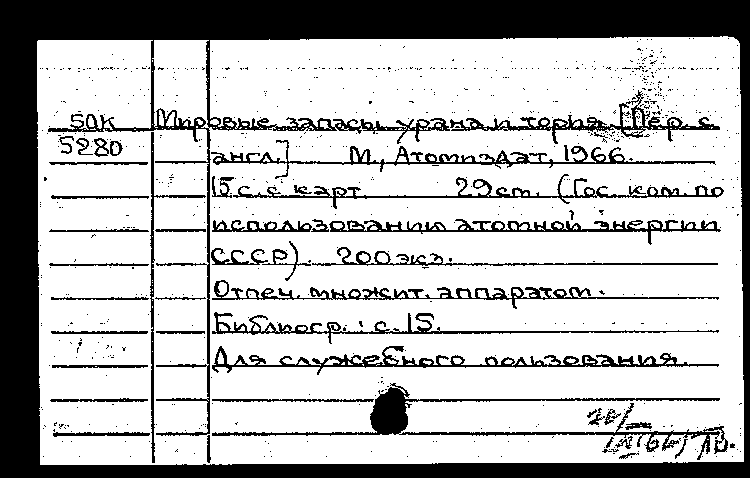 50К Мировые запасы урана и тория. [Пер. с
5280 англ.] М., Атомиздат, 1966.
15 с. с карт. 29 см. (Гос. ком. по
использованию атомной энергии
СССР). 200 экз.
Отпеч. множит. аппаратом.
Библиогр.: с. 15.
Для служебного пользования.